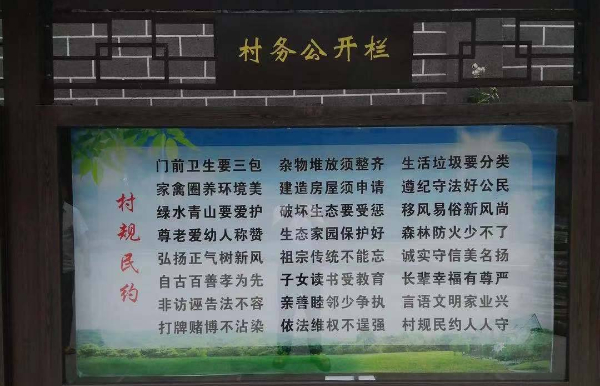 村务公开栏
村规民约
门前卫生要三包 杂物堆放须整齐 生活垃圾要分类
家禽圈养环境美 建造房屋须申请 遵纪守法好公民
绿水青山要爱护 破坏生态要受惩 移风易俗新风尚
尊老爱幼人称赞 生态家园保护好 森林防火少不了
弘扬正气树新风 祖宗传统不能忘 诚实守信美名扬
自古百善孝为先 子女读书受教育 长辈幸福有尊严
非访诬告法不容 亲善睦邻少争执 言语文明家业兴
打牌赌博不沾染 依法维权不逞强 村规民约人人守